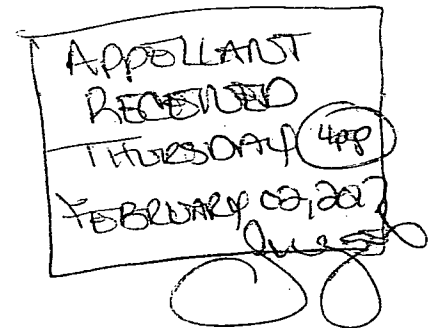 APPELLANT
RECEIVED
THURSDAY 4pp
FEBRUARY 02, 2017